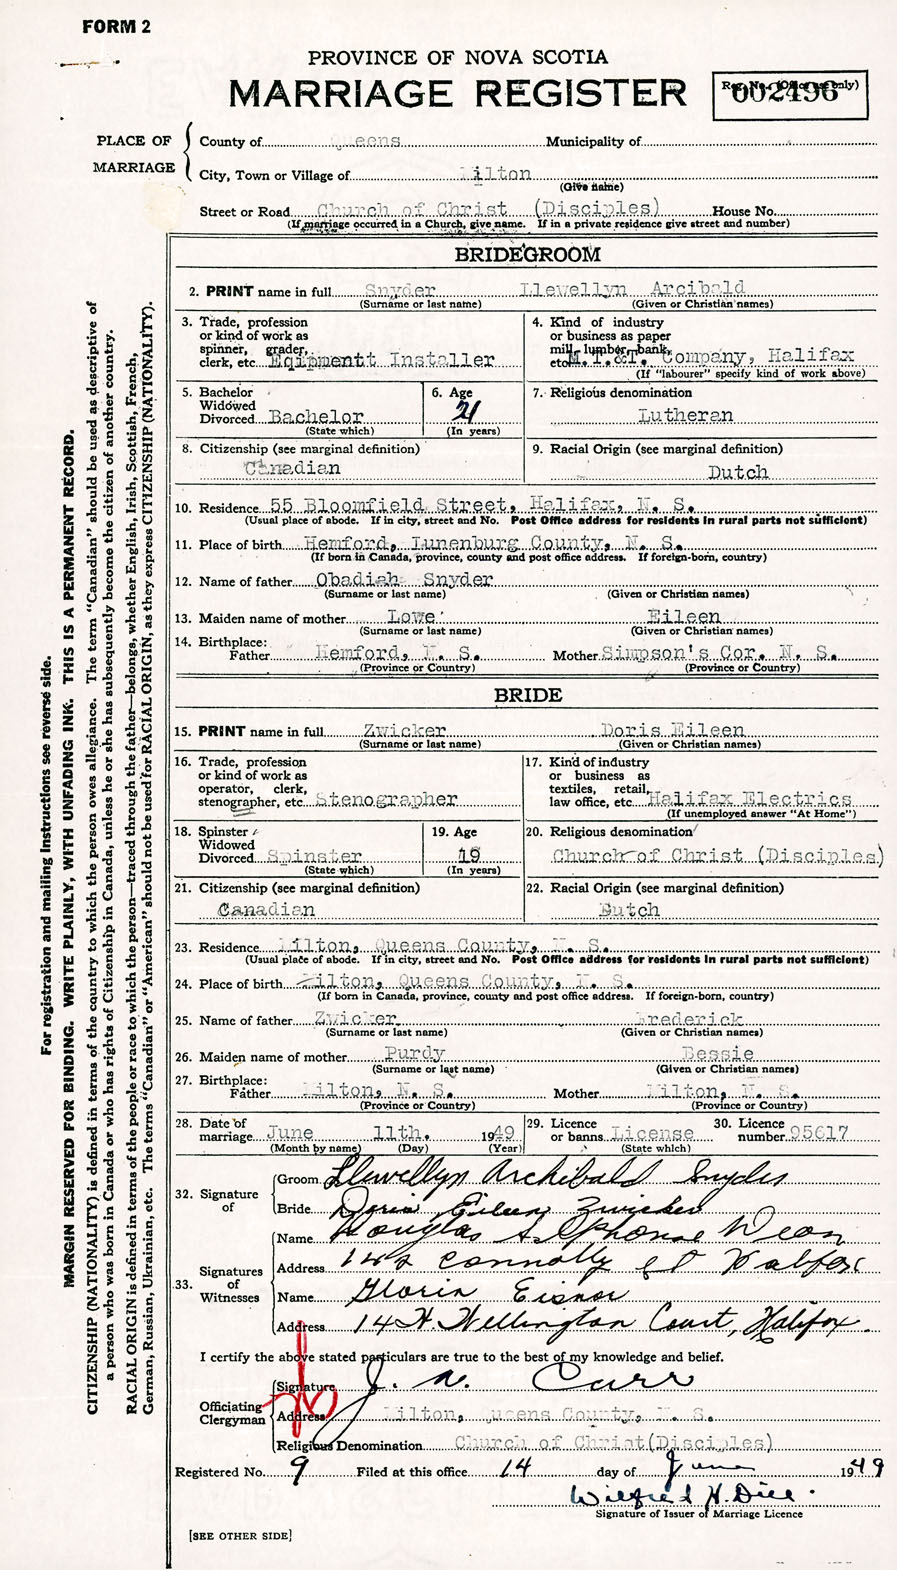 FORM 2
PROVINCE OF NOVA SCOTIA
MARRIAGE REGISTER
Reg. No. (Office use only)
002496
PLACE OF MARRIAGE
County of Queens Municipality of
City, Town or Village of Milton
(Give name)
Street or Road Church of Christ (Disciples) House No.
(If marriage occurred in a Church, give name. If in a private residence give street and number)
BRIDEGROOM
2. PRINT name in full Snyder Llewellyn Arcibald
(Surname or last name) (Given or Christian names)
3. Trade, profession
or kind of work as
spinner, grader,
clerk, etc. Eqipmentt Installer
4. Kind of industry
or business as paper
mill, lumber, bank,
etc. M.T.&T. Company, Halifax
(If "labourer" specify kind of work above)
5. Bachelor
Widowed
Divorced Bachelor
(State which)
6. Age
21
(In years)
7. Religious denomination
Lutheran
8. Citizenship (see marginal definition)
Canadian
9. Racial Origin (see marginal definition)
Dutch
10. Residence 55 Bloomfield Street, Halifax, N. S.
(Usual place of abode. If in city, street and No. Post Office address for residents in rural parts not sufficient)
11. Place of birth Hemford, Lunenburg County, N. S.
(If born in Canada, province, county and post office address. If foreign-born, country)
12. Name of father Obadiah Snyder
(Surname or last name) (Given or Christian names)
13. Maiden name of mother Lowe Eileen
(Surname or last name) (Given or Christian names)
14. Birthplace:
Father Hemford, N. S. Mother Simpson's Cor. N. S.
(Province or Country) (Province or Country)
BRIDE
15. PRINT name in full Zwicker Doris Eileen
(Surname or last name) (Given or Christian names)
16. Trade, profession
or kind of work as
operator, clerk,
stenographer, etc. Stenographer
17. Kind of industry
or business as
textiles, retail,
law office, etc. Halifax Electrics
(If unemployed answer "At Home")
18. Spinster
Widowed
Divorced Spinster
(State which)
19. Age
19
(In years)
20. Religious denomination
Church of Christ (Disciples)
21. Citizenship (see marginal definition)
Canadian
22. Racial Origin (see marginal definition)
Dutch
23. Residence Milton, Queens County, N. S.
(Usual place of abode. If in city, street and No. Post Office address for residents in rural parts not sufficient)
24. Place of birth Milton, Queens County, N. S.
(If born in Canada, province, county and post office address. If foreign-born, country)
25. Name of father Zwicker Frederick
(Surname or last name) (Given or Christian names)
26. Maiden name of mother Purdy Bessie
(Surname or last name) (Given or Christian names)
27. Birthplace:
Father Milton, N. S. Mother Milton, N. S.
(Province or Country) (Province or Country)
28. Date of
marriage June 11th. 1949
(Month by name) (Day) (Year)
29. Licence
or banns License
(State which)
30. Licence
number 95617
32. Signature of
Groom Llewellyn Archibald Snyder
Bride Doris Eileen Zwicker
33. Signatures of Witnesses
Name Douglas Alphonse Dean
Address 142 Connolly St Halifax
Name Gloria Eisnor
Address 14 H. Wellington Court, Halifax.
I certify the above stated particulars are true to the best of my knowledge and belief.
Officiating Clergyman
Signature J. N. Curr
Address Milton, Queens County, N. S.
Religious Denomination Church of Christ(Disciples)
Registered No. 9 Filed at this office 14 day of June 1949
Wilfred H. Dill.
Signature of Issuer of Marriage Licence
[SEE OTHER SIDE]
For registration and mailing instructions see reverse side.
MARGIN RESERVED FOR BINDING. WRITE PLAINLY, WITH UNFADING INK. THIS IS A PERMANENT RECORD.
CITIZENSHIP (NATIONALITY) is defined in terms of the country to which the person owes allegiance. The term "Canadian" should be used as descriptive of
a person who was born in Canada or who has rights of Citizenship in Canada, unless he or she has subsequently become the citizen of another country.
RACIAL ORIGIN is defined in terms of the people or race to which the person—traced through the father—belongs, whether English, Irish, Scottish, French,
German, Russian, Ukrainian, etc. The terms "Canadian" or "American" should not be used for RACIAL ORIGIN, as they express CITIZENSHIP (NATIONALITY).